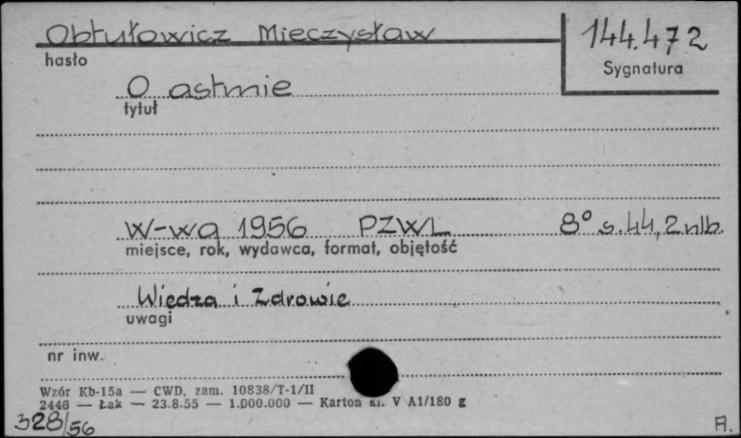 Obtułowicz Mieczysław
144.472
hasło
Sygnatura
O astmie
tytuł
W-wa 1956 PZWL 8° s.44, 2 nlb.
miejsce, rok, wydawca, format, objętość
Wiedza i Zdrowie
uwagi
nr inw.
Wzór Kb-15a — CWD, zam. 10838/T-1/II
2446 — Łak — 23.8.55 — 1.000.000 — Karton kl. V A1/180 g
328/56
A.